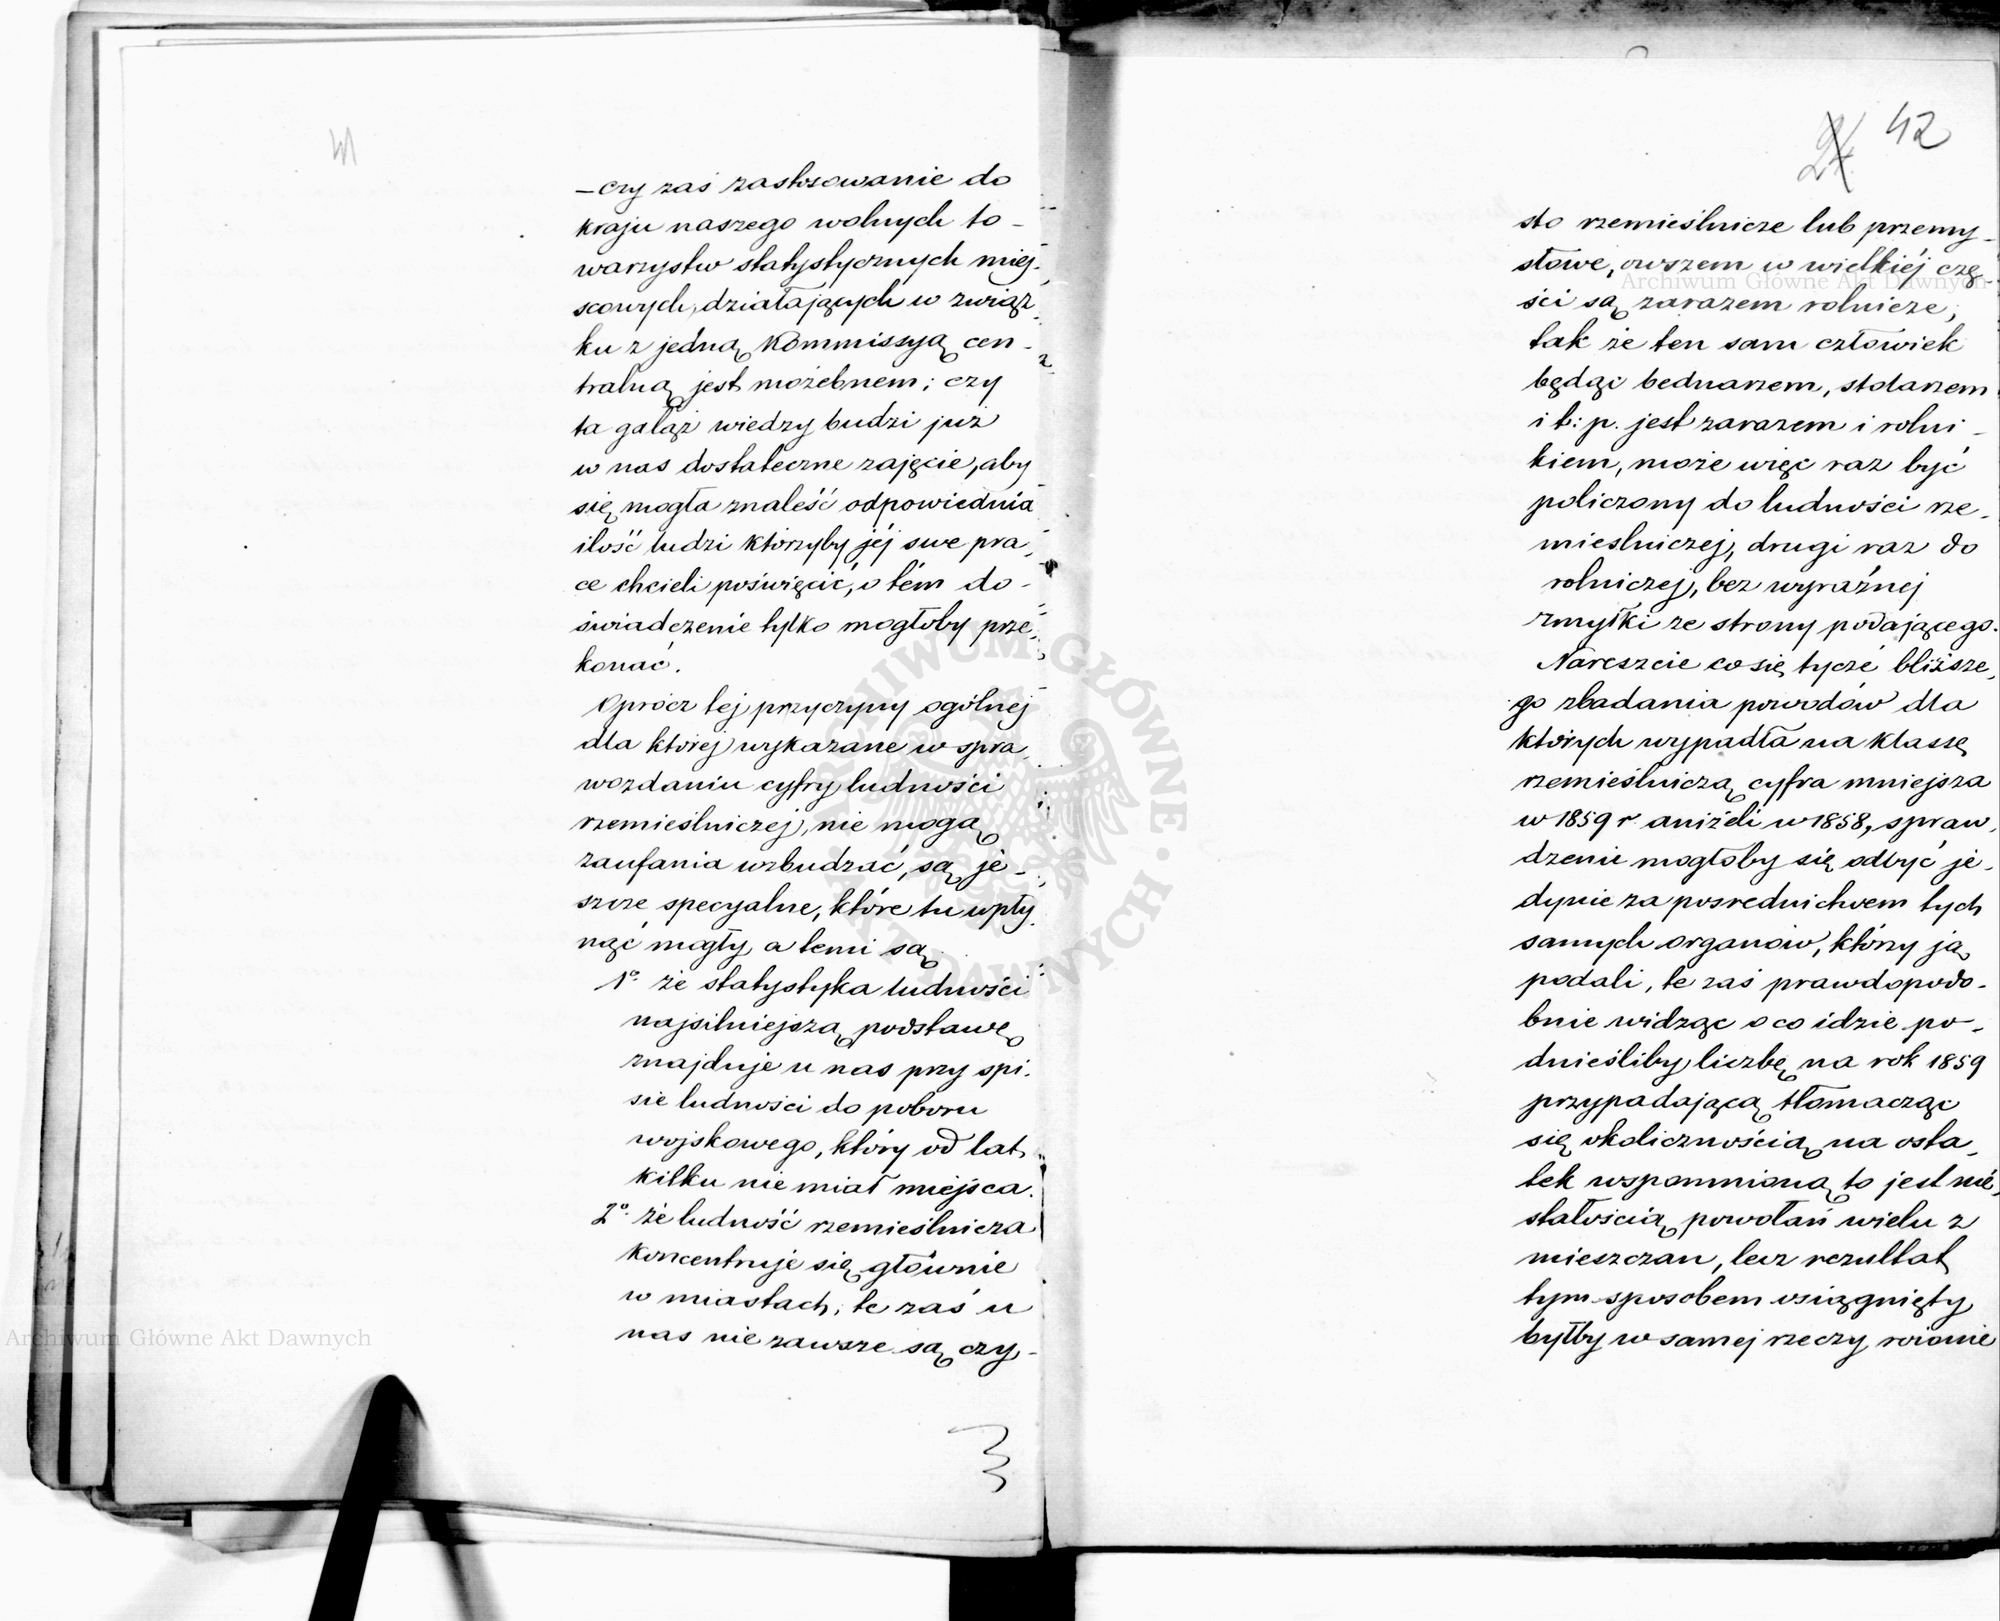 – czy zaś zastosowanie do
kraju naszego wolnych to-
warzystw statystycznych miej-
scowych, działających w związ-
ku z jedną Kommissyą cen-
tralną jest możebnem; czy
ta gałąź wiedzy budzi już
w nas dostateczne zajęcie, aby
się mogła znaleść odpowiednia
ilość ludzi którzyby jéj swe pra-
ce chcieli poświęcić, o tém do-
świadczenie tylko mogłoby prze-
konać.
Oprócz tej przyczyny ogólnej
dla której wykazane w spra-
wozdaniu cyfry ludności
rzemieślniczej, nie mogą
zaufania wzbudzać, są je-
szcze specyalne, które tu wpły-
nąć mogły, a temi są
1º. że statystyka ludności
najsilniejszą podstawę
znajduje u nas przy spi-
sie ludności do poboru
wojskowego, który od lat
kilku nie miał miejsca.
2º. że ludność rzemieślnicza
koncentruje się głównie
w miastach; te zaś u
nas nie zawsze są czy-
24 42
sto rzemieślnicze lub przemy-
słowe, owszem w wielkiéj czę-
ści są zarazem rolnicze;
tak że ten sam człowiek
będąc bednarzem, stolarzem
i t: p. jest zarazem i rolni-
kiem, może więc raz być
policzony do ludności rze-
mieslniczej, drugi raz do
rolniczej, bez wyraźnej
zmyłki ze strony podającego.
Nareszcie co się tyczé bliższe-
go zbadania powodów dla
których wypadła na klassę
rzemieślniczą cyfra mniejsza
w 1859 r aniżeli w 1858, spraw-
dzenie mogłoby się odbyć je-
dynie za posrednictwem tych
samych organów, którzy ją
podali, te zaś prawdopodo-
bnie widząc o co idzie po-
dnieśliby liczbę na rok 1859
przypadającą tłomacząc
się okolicznością na osta-
tek wspomnioną to jest nie-
stałością powołań wielu z
mieszczan, lecz rezultat
tym sposobem osiągnięty
byłby w samej rzeczy rownie
Archiwum Główne Akt Dawnych
Archiwum Główne Akt Dawnych
ARCHIWUM GŁÓWNE AKT DAWNYCH